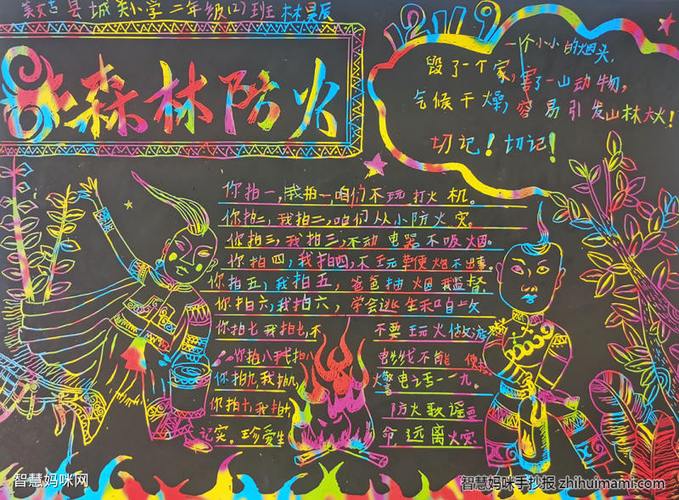 美姑县城关小学二年级(2)班 林昊辰
森林防火
12119
一个小小的烟头,
毁了一个家,害了一山动物,
气候干燥,容易引发山林大火!
切记!切记!
你拍一,我拍一,咱们不玩打火机。
你拍二,我拍二,咱们从小防火灾。
你拍三,我拍三,不动电器不吸烟。
你拍四,我拍四,不玩鞭炮不出事。
你拍五,我拍五,爸爸抽烟我
你拍六,我拍六,学会逃生和
你拍七我拍七,不 不要玩火做游
你拍八我拍八 电线不能
你拍九我拍九, 火警电话一一九。
你拍十,我拍十, 防火歌谣
记实。珍爱生 命远离火灾
智慧妈咪网
智慧妈咪手抄报 zhihuimami.com